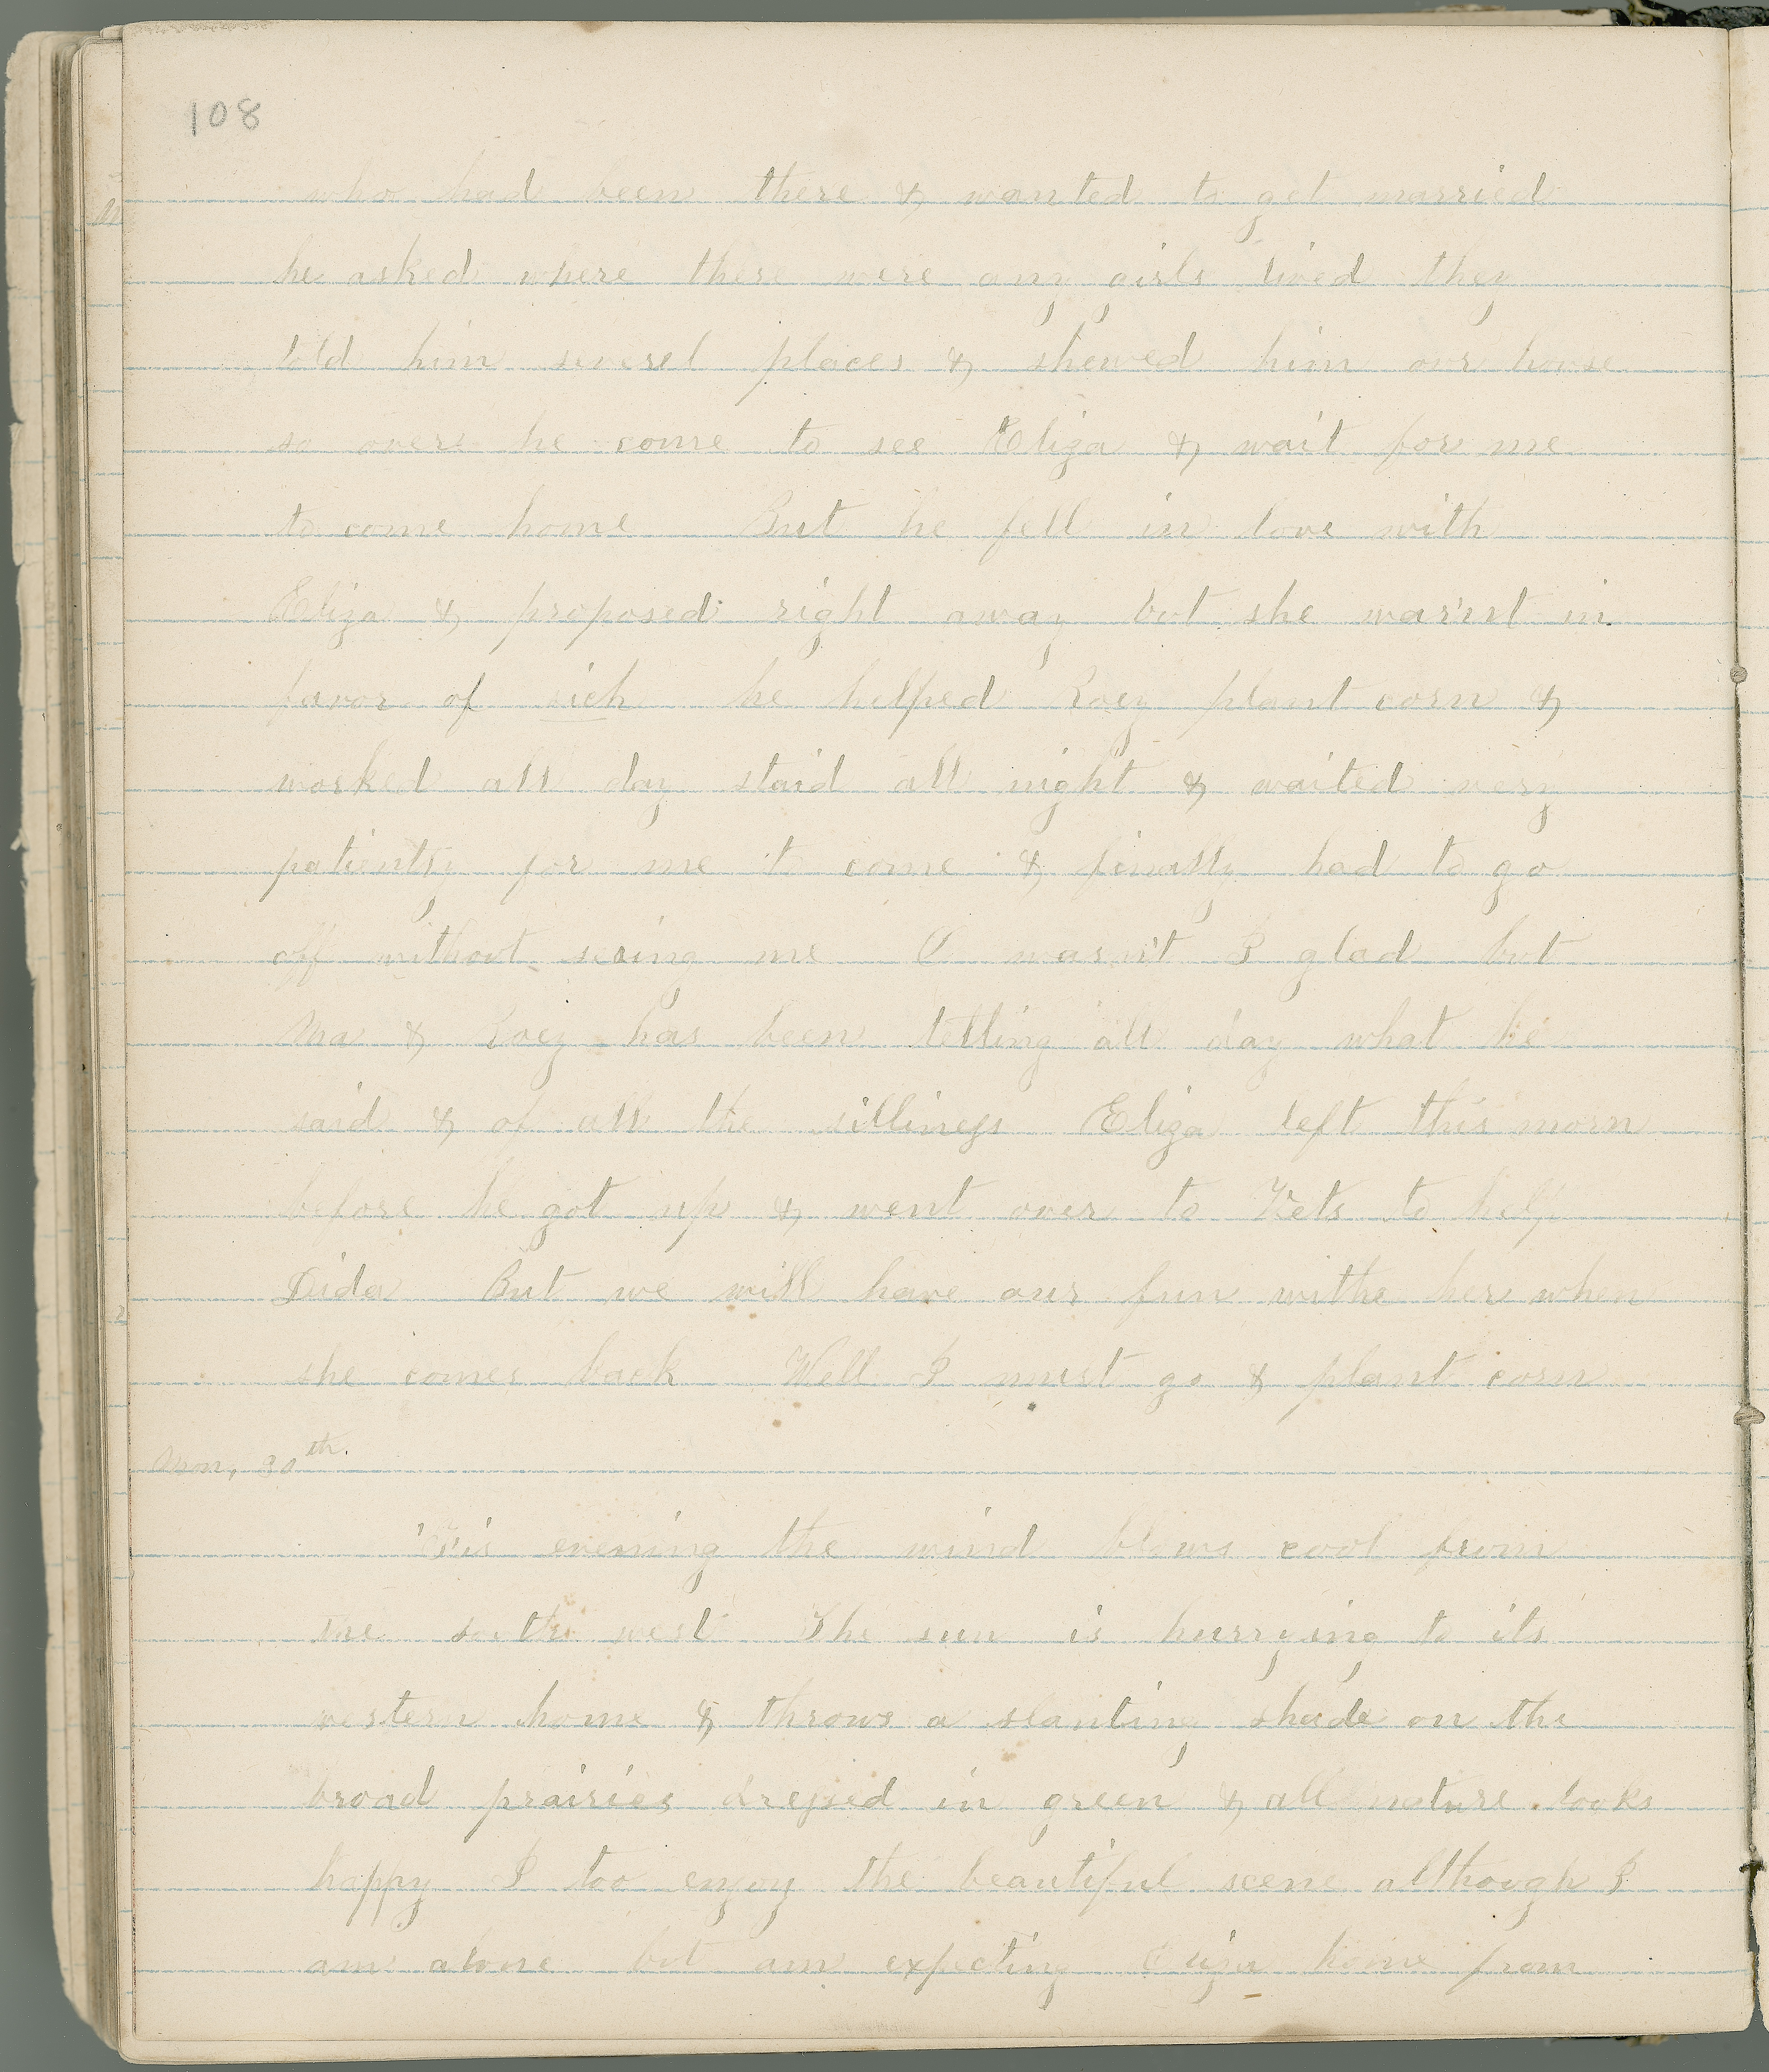 108
who had been there & wanted to get married
he asked where there were any girls lived they
told him severel places & shewed him our house
so over he come to see Eliza & wait for me
to come home But he fell in love with
Eliza & proposed right away but she was'nt in
favor of sich he helped Roey plant corn &
worked all day staid all night & waited very
patiently for me to come & finally had to go
off without seeing me O was n't I glad but
Ma & Roey has been telling all day what he
said & of all the silliness Eliza left this morn
before he got up & went over to Vets to help
Dida But we will have our fun withe her when
she comes back Well I must go & plant corn
Mon, 30th.
'Tis evening the wind blows cool from
the south west The sun is hurrying to its
western home & throws a slanting shade on the
broad prairies dressed in green & all nature looks
happy I too enjoy the beautiful scene although I
am alone but am expecting Eliza home from